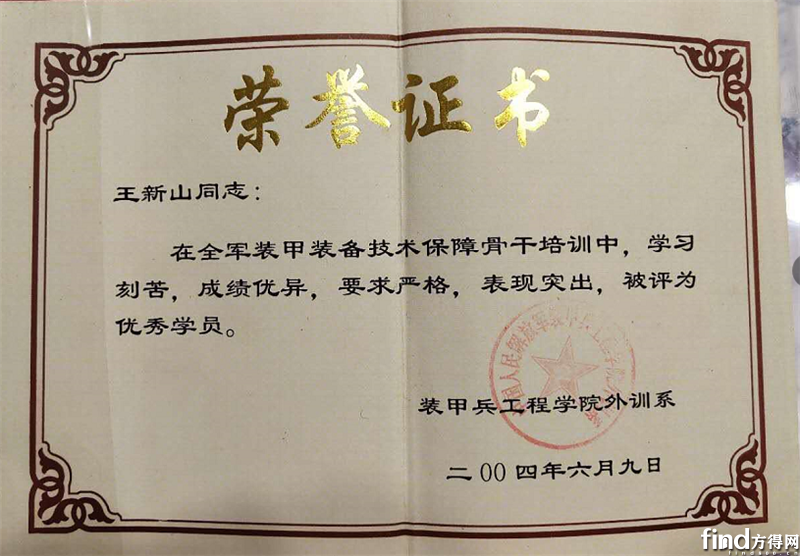 荣誉证书
王新山同志：
在全军装甲装备技术保障骨干培训中，学习
刻苦，成绩优异，要求严格，表现突出，被评为
优秀学员。
装甲兵工程学院外训系
二00四年六月九日
find方得网